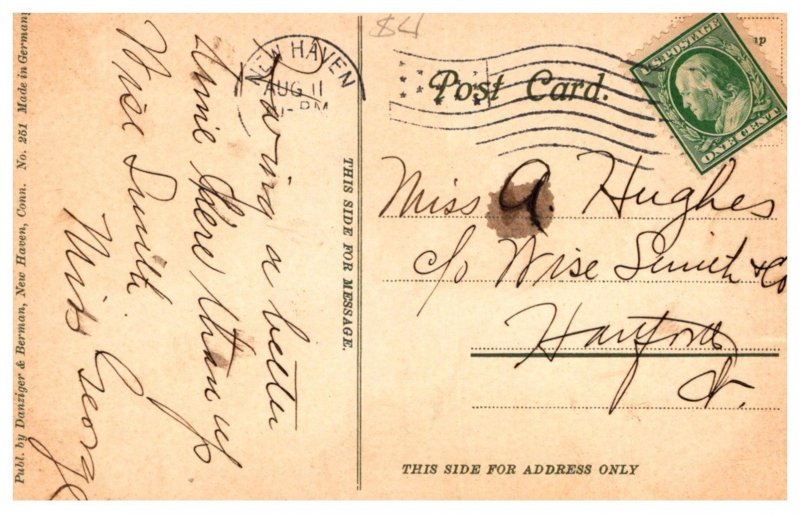 Publ. by Danziger & Berman, New Haven, Conn. No. 251 Made in Germany
Having a better
time here than up
Wise Smith.
Miss George
THIS SIDE FOR MESSAGE.
$4
NEW HAVEN
AUG 11
-PM
Post Card.
U.S. POSTAGE
ONE CENT
Miss A. Hughes
c/o Wise Smith & Co
Hartford
Ct.
THIS SIDE FOR ADDRESS ONLY